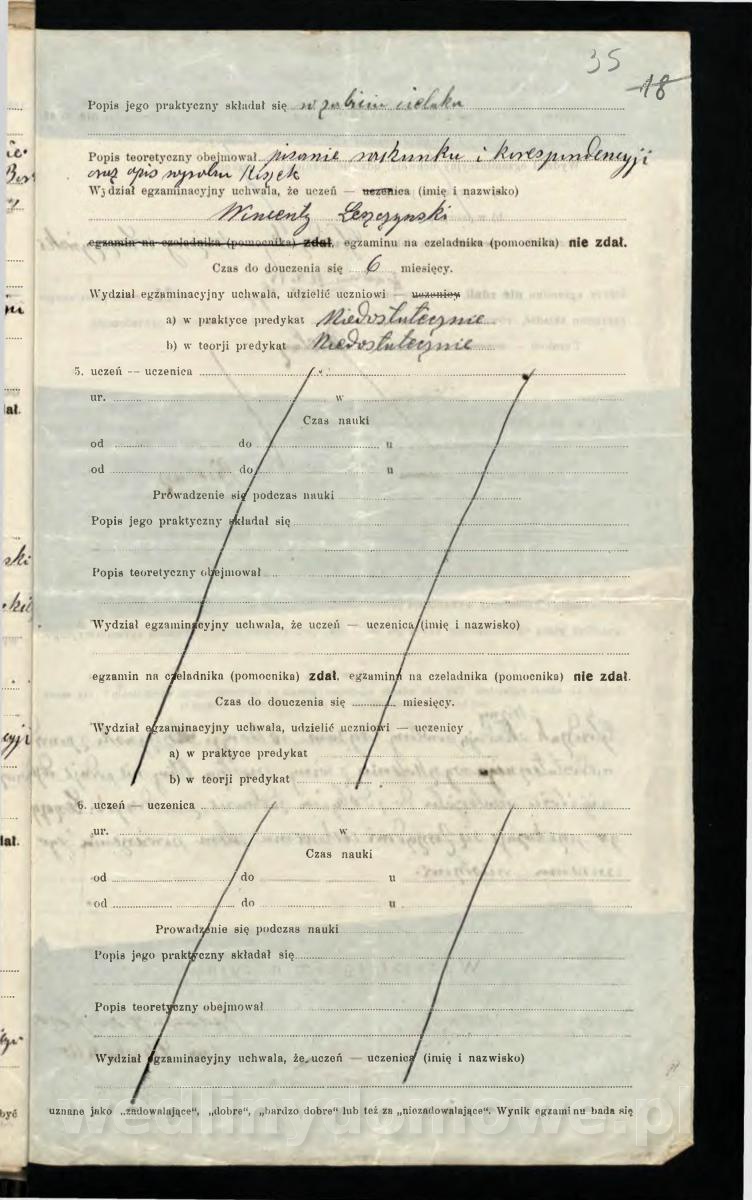 35
18
Popis jego praktyczny składał się w zabiciu cielaka
Popis teoretyczny obejmował pisanie rachunku i korespondencyji
oraz opis wyrobu kiszek
Wydział egzaminacyjny uchwala, że uczeń — uczenica (imię i nazwisko)
Wincenty Leszczynski
egzamin na czeladnika (pomocnika) zdał, egzaminu na czeladnika (pomocnika) nie zdał.
Czas do douczenia się 6 miesięcy.
Wydział egzaminacyjny uchwala, udzielić uczniowi — uczenicy
a) w praktyce predykat Niedostatecznie
b) w teorji predykat Niedostatecznie
5. uczeń — uczenica
ur. w
Czas nauki
od do u
od do u
Prowadzenie się podczas nauki
Popis jego praktyczny składał się
Popis teoretyczny obejmował
Wydział egzaminacyjny uchwala, że uczeń — uczenica (imię i nazwisko)
egzamin na czeladnika (pomocnika) zdał, egzaminu na czeladnika (pomocnika) nie zdał.
Czas do douczenia się miesięcy.
Wydział egzaminacyjny uchwala, udzielić uczniowi — uczenicy
a) w praktyce predykat
b) w teorji predykat
6. uczeń — uczenica
ur. w
Czas nauki
od do u
od do u
Prowadzenie się podczas nauki
Popis jego praktyczny składał się
Popis teoretyczny obejmował
Wydział egzaminacyjny uchwala, że uczeń — uczenica (imię i nazwisko)
uznane jako „zadowalające“, „dobre“, „bardzo dobre“ lub też za „niezadowalające“. Wynik egzaminu bada się
wedlinydomowe.pl